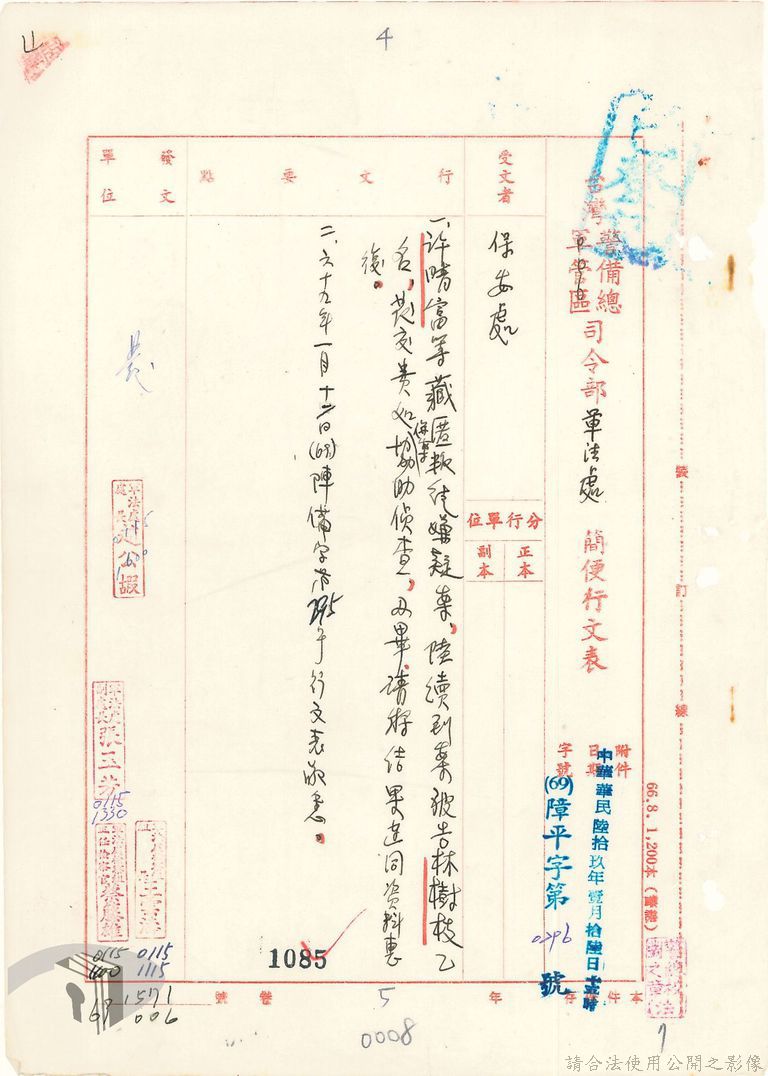 4
台灣警備總
軍管區司令部軍法處 簡便行文表
附件
日期 中華民國陸拾玖年壹月拾陸日
字號 (69)障平字第0296號
受文者
保安處
分行單位
正本
副本
行文要點
一、許晴富等藏匿叛徒嫌疑案,陸續到案被告林樹枝乙
名,茲交貴處協助偵查,及畢,請將結果連同資料惠
復。
二、六十九年一月十二日(69)陣備字第 行文表敬悉。
發文單位
裝
訂
線
66.8.1,200本
1085
張玉芳
0115
1330
0115
1115
0115
69 1571
006
本件存 年 5 卷 號
0008
7
請合法使用公開之影像